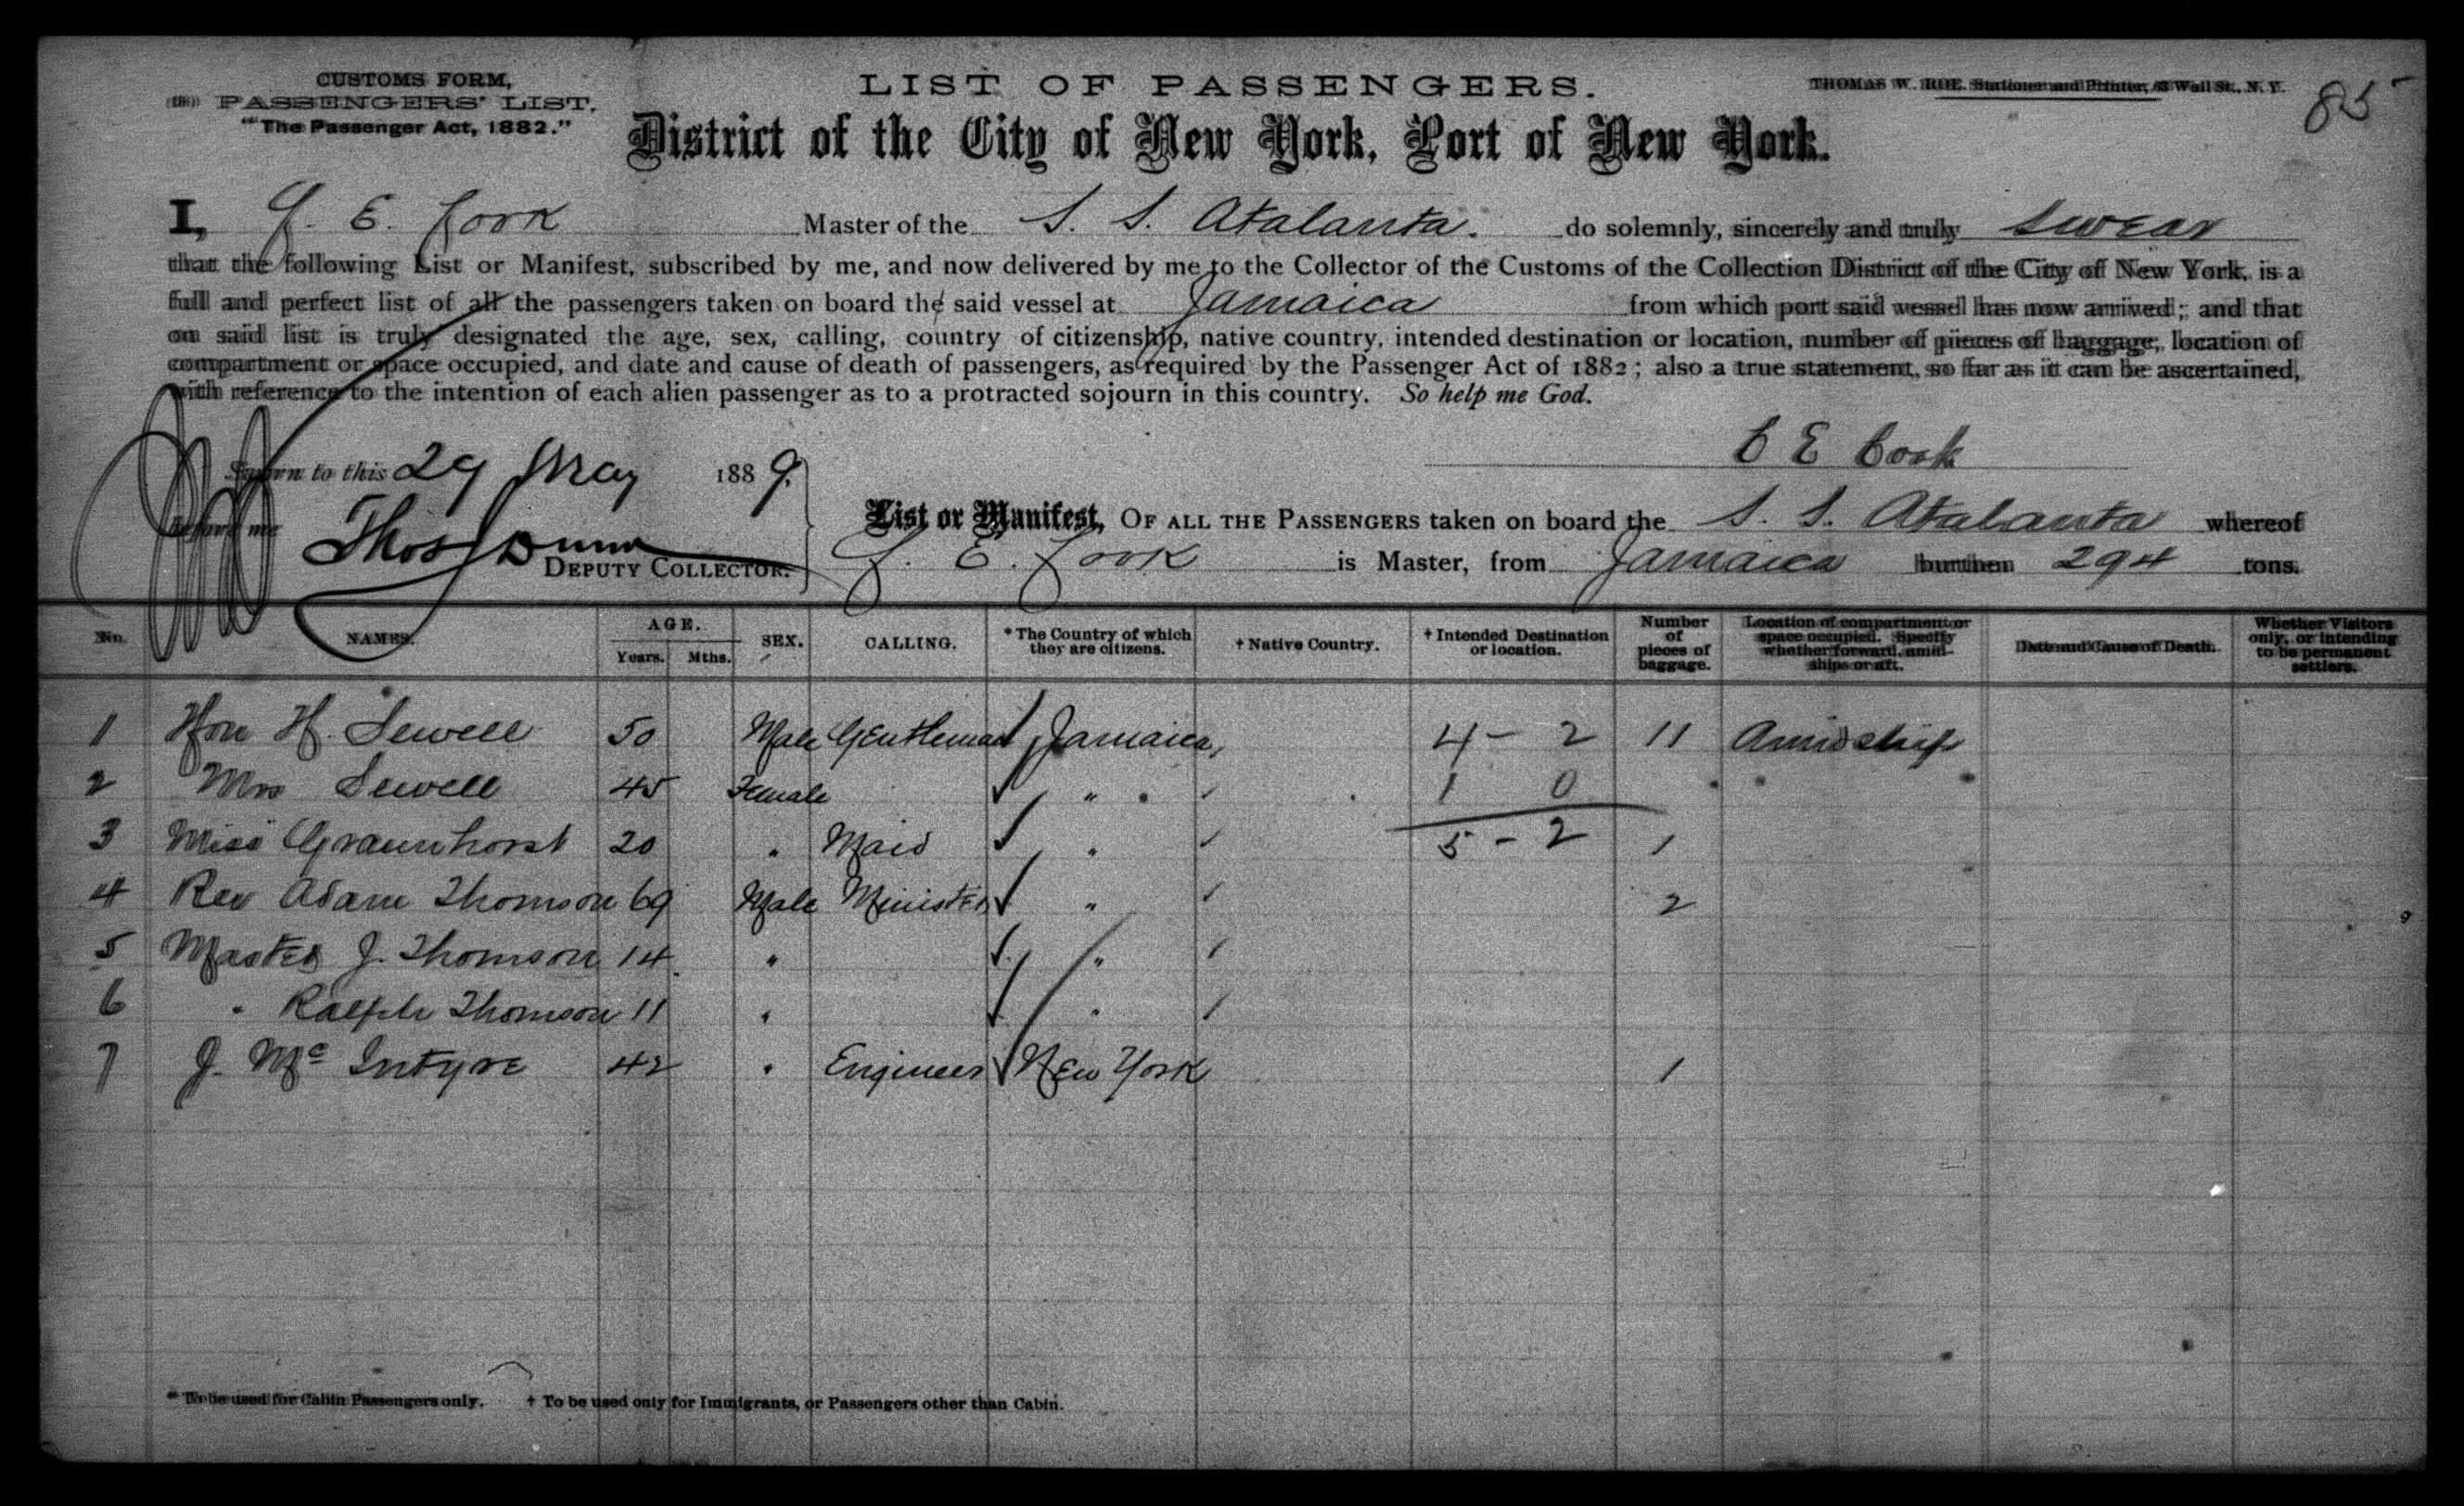 CUSTOMS FORM,
PASSENGERS' LIST.
"The Passenger Act, 1882."
LIST OF PASSENGERS.
THOMAS W. ROE, Stationer and Printer, Wall St., N. Y.
85
District of the City of New York, Port of New York.
I, C. E. Cook Master of the S. S. Atalanta. do solemnly, sincerely and truly swear
that the following List or Manifest, subscribed by me, and now delivered by me to the Collector of the Customs of the Collection District of the City of New York, is a
full and perfect list of all the passengers taken on board the said vessel at Jamaica from which port said vessel has now arrived; and that
on said list is truly designated the age, sex, calling, country of citizenship, native country, intended destination or location, number of pieces of baggage, location of
compartment or space occupied, and date and cause of death of passengers, as required by the Passenger Act of 1882; also a true statement, so far as it can be ascertained,
with reference to the intention of each alien passenger as to a protracted sojourn in this country. So help me God.
C E Cook
Sworn to this 29 May 1889.
before me Thos Dunn
DEPUTY COLLECTOR.
List or Manifest, OF ALL THE PASSENGERS taken on board the S. S. Atalanta whereof
C. E. Cook is Master, from Jamaica burthen 294 tons.
No. NAMES. AGE. Years. Mths. SEX. CALLING. * The Country of which they are citizens. † Native Country. † Intended Destination or location. Number of pieces of baggage. Location of compartment or space occupied. Specify whether forward, amidships or aft. Date and Cause of Death. Whether Visitors only, or intending to be permanent settlers.
1 Hon H. Sewell 50 Male Gentleman Jamaica, 4 - 2 11 Amidship
2 Mrs Sewell 45 Female " 1 0
3 Miss Graunhorst 20 " Maid " 5 - 2 1
4 Rev Adam Thomson 69 Male Minister " 2
5 Master J. Thomson 14 " "
6 " Ralph Thomson 11 " "
7 J. Mc Intyre 42 " Engineer New York 1
* To be used for Cabin Passengers only. † To be used only for Immigrants, or Passengers other than Cabin.